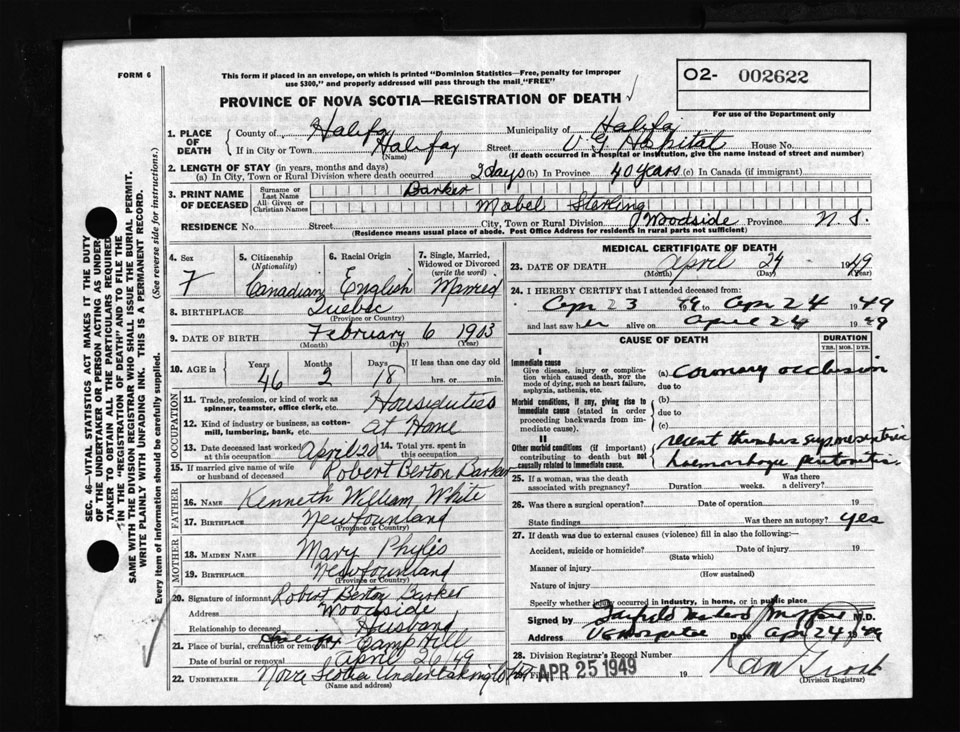 FORM 6
This form if placed in an envelope, on which is printed "Dominion Statistics—Free, penalty for improper
use $300," and properly addressed will pass through the mail "FREE"
O2- 002622
For use of the Department only
PROVINCE OF NOVA SCOTIA—REGISTRATION OF DEATH
1. PLACE OF DEATH
County of Halifax Municipality of Halifax
If in City or Town Halifax (Name) Street V G Hospital House No.
(If death occurred in a hospital or institution, give the name instead of street and number)
2. LENGTH OF STAY (in years, months and days)
(a) In City, Town or Rural Division where death occurred 2 days (b) In Province 40 years (c) In Canada (if immigrant)
3. PRINT NAME OF DECEASED
Surname or Last Name Barker
All Given or Christian Names Mabel Sterling
RESIDENCE No. Street City, Town or Rural Division Woodside Province N. S.
(Residence means usual place of abode. Post Office Address for residents in rural parts not sufficient)
4. Sex F
5. Citizenship (Nationality) Canadian
6. Racial Origin English
7. Single, Married, Widowed or Divorced (write the word) Married
8. BIRTHPLACE Quebec
(Province or Country)
9. DATE OF BIRTH February 6 1903
(Month) (Day) (Year)
10. AGE in Years 46 Months 2 Days 18 If less than one day old hrs. or min.
OCCUPATION
11. Trade, profession, or kind of work as spinner, teamster, office clerk, etc. Houseduties
12. Kind of industry or business, as cotton-mill, lumbering, bank, etc. At Home
13. Date deceased last worked at this occupation April 20
14. Total yrs. spent in this occupation
15. If married give name of wife or husband of deceased Robert Berton Barker
FATHER
16. NAME Kenneth William White
17. BIRTHPLACE Newfounland
(Province or Country)
MOTHER
18. MAIDEN NAME Mary Phylis
19. BIRTHPLACE Newfounland
(Province or Country)
20. Signature of informant Robert Berton Barker
Address Woodside
Relationship to deceased Husband
21. Place of burial, cremation or removal Halifax Camp Hill
Date of burial or removal April 26 49
22. UNDERTAKER Nova Scotia Undertaking
(Name and address)
MEDICAL CERTIFICATE OF DEATH
23. DATE OF DEATH April 24 1949
(Month) (Day) (Year)
24. I HEREBY CERTIFY that I attended deceased from:
Apr 23 1949 to Apr 24 1949
and last saw her alive on April 24 1949
CAUSE OF DEATH
DURATION
YRS. MOS. DYS.
I
Immediate cause
Give disease, injury or complication which caused death, nor the mode of dying, such as heart failure, asphyxia, asthenia, etc.
(a) Coronary occlusion
due to
Morbid conditions, if any, giving rise to immediate cause (stated in order proceeding backwards from immediate cause).
(b)
due to
(c)
II
Other morbid conditions (if important) contributing to death but not causally related to immediate cause.
recent
haemorrhagic peritonitis
25. If a woman, was the death associated with pregnancy? Duration weeks. Was there a delivery?
26. Was there a surgical operation? Date of operation 19
State findings Was there an autopsy? yes
27. If death was due to external causes (violence) fill in also the following:—
Accident, suicide or homicide? Date of injury 19
(State which)
Manner of injury
(How sustained)
Nature of injury
Specify whether injury occurred in industry, in home, or in public place
Signed by M.D.
Address V G Hospital Date Apr 24 1949
28. Division Registrar's Record Number
Filed APR 25 1949 19
(Division Registrar)
SEC. 46—VITAL STATISTICS ACT MAKES IT THE DUTY
OF THE UNDERTAKER OR PERSON ACTING AS UNDER-
TAKER TO OBTAIN ALL THE PARTICULARS REQUIRED
IN THE "REGISTRATION OF DEATH" AND TO FILE THE
SAME WITH THE DIVISION REGISTRAR WHO SHALL ISSUE THE BURIAL PERMIT.
WRITE PLAINLY WITH UNFADING INK. THIS IS A PERMANENT RECORD.
Every item of information should be carefully supplied. (See reverse side for instructions.)